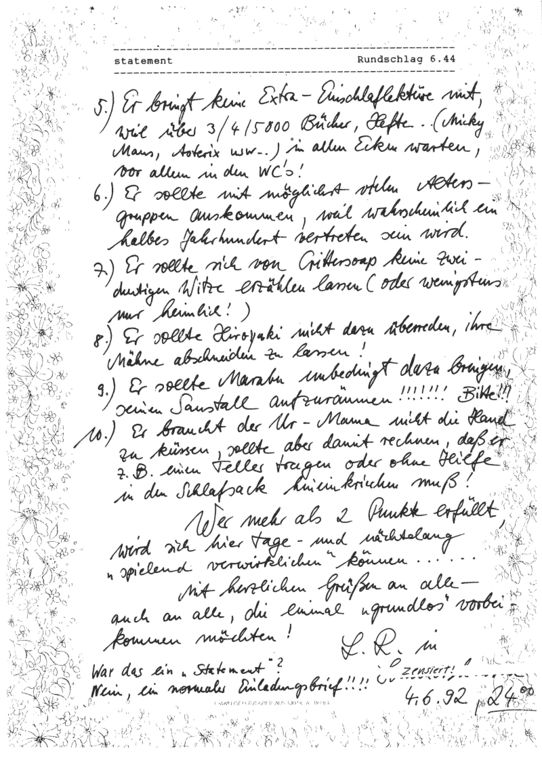 statement Rundschlag 6.44
5.) Er bringt keine Extra-Einschlaflektüre mit,
weil über 3/4/5000 Bücher, Hefte .. (Micky
Maus, Asterix usw...) in allen Ecken warten,
vor allem in den WC's!
6.) Er sollte mit möglichst vielen Alters-
gruppen auskommen, weil wahrscheinlich ein
halbes Jahrhundert vertreten sein wird.
7.) Er sollte sich von Crittersoap keine zwei-
deutigen Witze erzählen lassen (oder wenigstens
nur heimlich!)
8.) Er sollte Hiroyuki nicht dazu überreden, ihre
Mähne abschneiden zu lassen!
9.) Er sollte Marabu unbedingt dazu bringen,
seinen Saustall aufzuräumen !!!!!!! Bitte!!!
10.) Er braucht der Ur-Mama nicht die Hand
zu küssen, sollte aber damit rechnen, daß er
z.B. einen Teller tragen oder ohne Hilfe
in den Schlafsack hineinkriechen muß!
Wer mehr als 2 Punkte erfüllt,
wird sich hier tage- und nächtelang
"spielend verwirklichen" können ......
Mit herzlichen Grüßen an alle -
auch an alle, die einmal "grundlos" vorbei-
kommen möchten!
L. R. in
War das ein "Statement"? zensiert!
Nein, ein normaler Einladungsbrief!!!!
4.6.92, 24⁰⁰